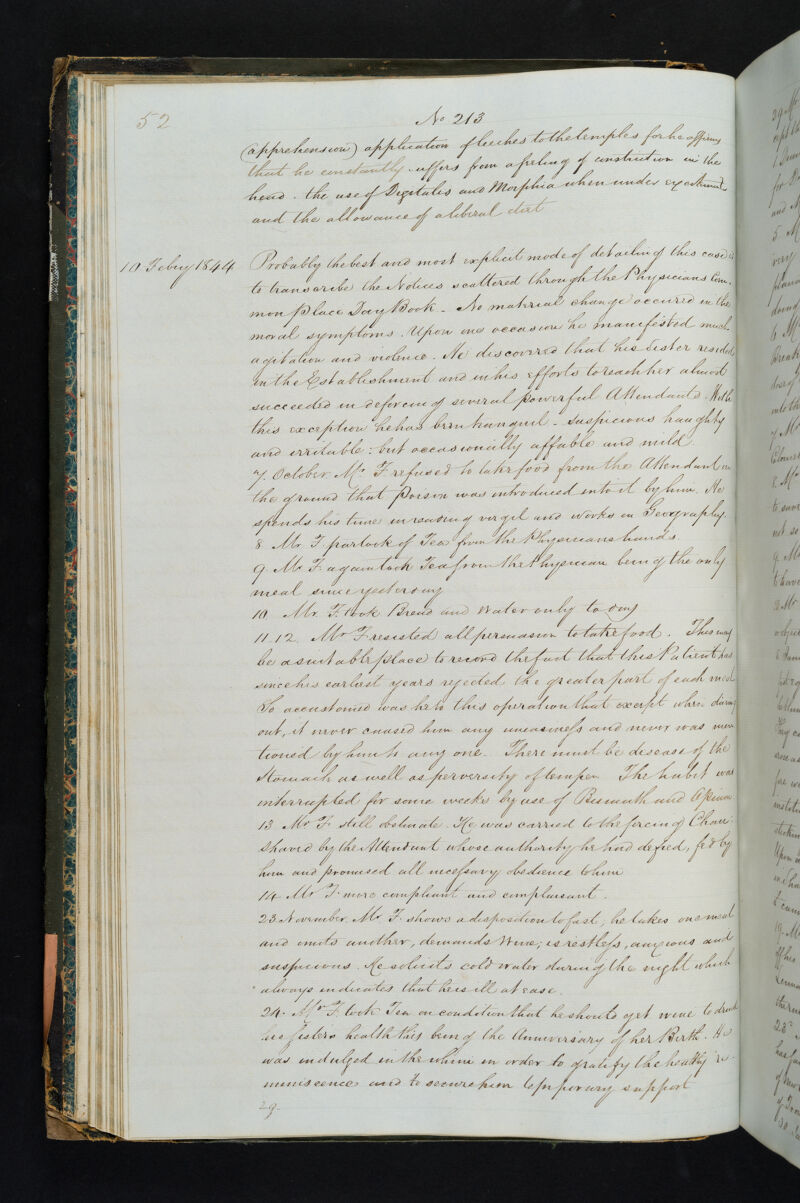 52
No 213
(apprehension) application of leeches to the temples for he affirms
that he constantly suffers from a feeling of constriction in the
head. the use of Digitalis and Morphia when under excitement
and the allowance of a liberal diet
10 Febry 1844 Probably the best and most explicit mode of detailing this case is
to transcribe the Notices scattered through the Physicians Com-
mon place Day Book - No material change occurred in the
moral symptoms. Upon one occasion he manifested much
agitation and violence. He discovered that his Sister resided
in the Establishment and in his efforts to reach her almost
succeeded in deforcing of several powerful Attendants. With
this exception he has been tranquil - suspicious haughty
and irritable: but occasionally affable and mild.
7. October. Mr F refused to take food from the Attendant on
the ground that poison was introduced into it by him. He
spends his time in reading virgil and works on Geography.
8 Mr. F. partook of Tea from the Physicians hands.
9. Mr F. again took Tea from the Physician being the only
meal since yesterday
10 Mr. F. took Bread and Water only to day
11. 12. Mr F resisted all persuasion to take food. This may
be a suitable place to record the fact that this Patient has
since his earliest years rejected the greater part of each meal
So accustomed was he to this operation that except when dining
out, it never caused him any uneasiness and never was men
tioned by him to any one. There must be disease of the
Stomach as well as perversity of temper. The habit was
interrupted for some weeks by use of Bismuth and Opium
13 Mr F. still obstinate. He was carried to the forcing Chair:
Shaved by the Attendant whose authority he had defied, fed by
him and promised all necessary obedience to him
14 Mr F. more compliant and complaisant.
23 November. Mr. F. shows a disposition to fast; he takes one meal
and omits another, demands Wine; is restless, anxious and
suspicious. He solicits cold water during the night which
always indicates that he is ill at ease.
24. Mr F. took Tea on condition that he should get wine to drink
his Sisters health this being the Anniversary of her Birth. He
was indulged in the whim in order to gratify the healthy re-
miniscence and to secure him temporary support
29.